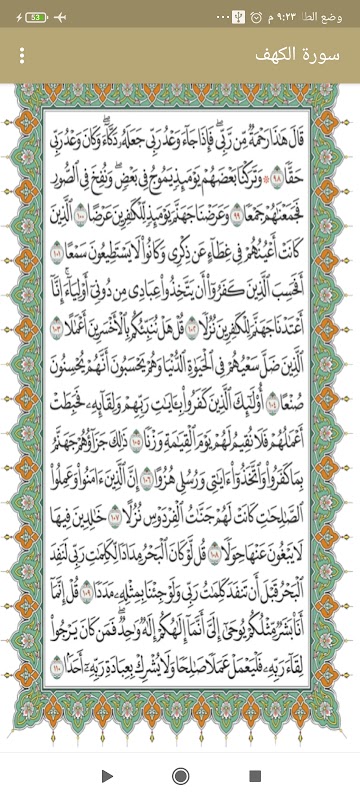 وضع الطا ٩:٢٣ م 53
سورة الكهف
قَالَ هَٰذَا رَحْمَةٌ مِّن رَّبِّي ۖ فَإِذَا جَآءَ وَعْدُ رَبِّي جَعَلَهُۥ دَكَّآءَ ۖ وَكَانَ وَعْدُ رَبِّي
حَقًّا ٩٨ ۞ وَتَرَكْنَا بَعْضَهُمْ يَوْمَئِذٍ يَمُوجُ فِي بَعْضٍ ۖ وَنُفِخَ فِي ٱلصُّورِ
فَجَمَعْنَٰهُمْ جَمْعًا ٩٩ وَعَرَضْنَا جَهَنَّمَ يَوْمَئِذٍ لِّلْكَٰفِرِينَ عَرْضًا ١٠٠ ٱلَّذِينَ
كَانَتْ أَعْيُنُهُمْ فِي غِطَآءٍ عَن ذِكْرِي وَكَانُوا۟ لَا يَسْتَطِيعُونَ سَمْعًا ١٠١
أَفَحَسِبَ ٱلَّذِينَ كَفَرُوٓا۟ أَن يَتَّخِذُوا۟ عِبَادِي مِن دُونِيٓ أَوْلِيَآءَ ۚ إِنَّآ
أَعْتَدْنَا جَهَنَّمَ لِلْكَٰفِرِينَ نُزُلًا ١٠٢ قُلْ هَلْ نُنَبِّئُكُم بِٱلْأَخْسَرِينَ أَعْمَٰلًا ١٠٣
ٱلَّذِينَ ضَلَّ سَعْيُهُمْ فِي ٱلْحَيَوٰةِ ٱلدُّنْيَا وَهُمْ يَحْسَبُونَ أَنَّهُمْ يُحْسِنُونَ
صُنْعًا ١٠٤ أُو۟لَٰٓئِكَ ٱلَّذِينَ كَفَرُوا۟ بِـَٔايَٰتِ رَبِّهِمْ وَلِقَآئِهِۦ فَحَبِطَتْ
أَعْمَٰلُهُمْ فَلَا نُقِيمُ لَهُمْ يَوْمَ ٱلْقِيَٰمَةِ وَزْنًا ١٠٥ ذَٰلِكَ جَزَآؤُهُمْ جَهَنَّمُ
بِمَا كَفَرُوا۟ وَٱتَّخَذُوٓا۟ ءَايَٰتِي وَرُسُلِي هُزُوًا ١٠٦ إِنَّ ٱلَّذِينَ ءَامَنُوا۟ وَعَمِلُوا۟
ٱلصَّٰلِحَٰتِ كَانَتْ لَهُمْ جَنَّٰتُ ٱلْفِرْدَوْسِ نُزُلًا ١٠٧ خَٰلِدِينَ فِيهَا
لَا يَبْغُونَ عَنْهَا حِوَلًا ١٠٨ قُل لَّوْ كَانَ ٱلْبَحْرُ مِدَادًا لِّكَلِمَٰتِ رَبِّي لَنَفِدَ
ٱلْبَحْرُ قَبْلَ أَن تَنفَدَ كَلِمَٰتُ رَبِّي وَلَوْ جِئْنَا بِمِثْلِهِۦ مَدَدًا ١٠٩ قُلْ إِنَّمَآ
أَنَا۠ بَشَرٌ مِّثْلُكُمْ يُوحَىٰٓ إِلَيَّ أَنَّمَآ إِلَٰهُكُمْ إِلَٰهٌ وَٰحِدٌ ۖ فَمَن كَانَ يَرْجُوا۟
لِقَآءَ رَبِّهِۦ فَلْيَعْمَلْ عَمَلًا صَٰلِحًا وَلَا يُشْرِكْ بِعِبَادَةِ رَبِّهِۦٓ أَحَدًۢا ١١٠